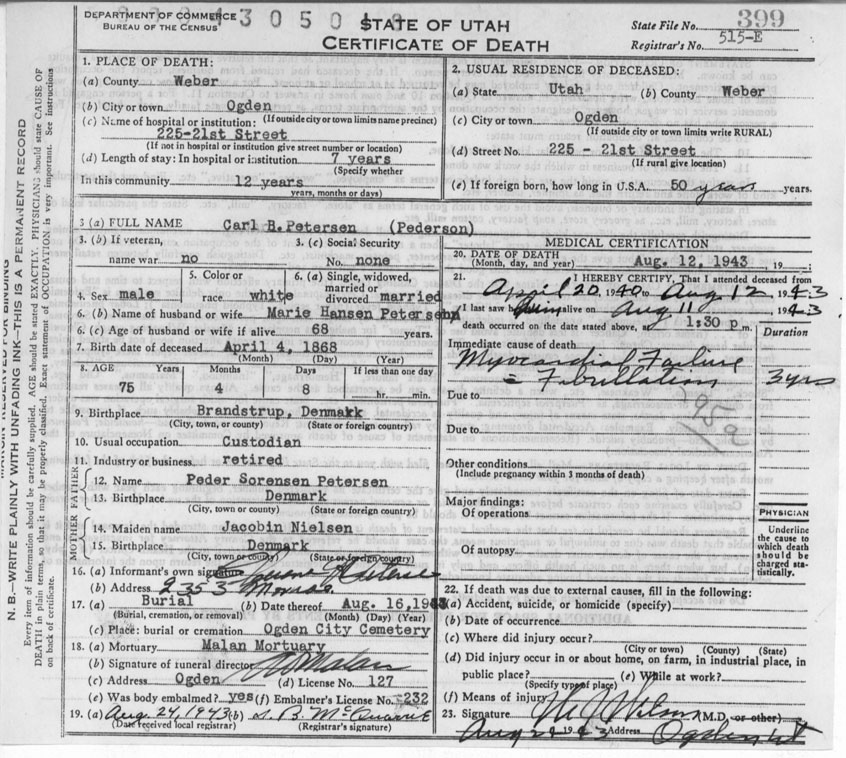 DEPARTMENT OF COMMERCE
BUREAU OF THE CENSUS
43050
STATE OF UTAH
CERTIFICATE OF DEATH
State File No. 399
Registrar's No. 515-E
1. PLACE OF DEATH:
(a) County Weber
(b) City or town Ogden
(c) Name of hospital or institution: (If outside city or town limits name precinct)
225-21st Street
(If not in hospital or institution give street number or location)
(d) Length of stay: In hospital or institution 7 years
(Specify whether
In this community 12 years
years, months or days)
2. USUAL RESIDENCE OF DECEASED:
(a) State Utah (b) County Weber
(c) City or town Ogden
(If outside city or town limits write RURAL)
(d) Street No. 225 - 21st Street
(If rural give location)
(e) If foreign born, how long in U.S.A. 50 years years.
3 (a) FULL NAME Carl B. Petersen (Pederson)
3. (b) If veteran, name war no
3. (c) Social Security No. none
4. Sex male
5. Color or race white
6. (a) Single, widowed, married or divorced married
6. (b) Name of husband or wife Marie Hansen Petersen
6. (c) Age of husband or wife if alive 68 years.
7. Birth date of deceased April 4, 1868
(Month) (Day) (Year)
8. AGE Years Months Days If less than one day
75 4 8 hr. min.
9. Birthplace Brandstrup, Denmark
(City, town, or county) (State or foreign country)
10. Usual occupation Custodian
11. Industry or business retired
FATHER
12. Name Peder Sorensen Petersen
13. Birthplace Denmark
(City, town or county) (State or foreign country)
MOTHER
14. Maiden name Jacobin Nielsen
15. Birthplace Denmark
(City, town or county) (State or foreign country)
16. (a) Informant's own signature
(b) Address 2353 Monroe
17. (a) Burial (b) Date thereof Aug. 16, 1943
(Burial, cremation, or removal) (Month) (Day) (Year)
(c) Place: burial or cremation Ogden City Cemetery
18. (a) Mortuary Malan Mortuary
(b) Signature of funeral director Malan
(c) Address Ogden (d) License No. 127
(e) Was body embalmed? yes (f) Embalmer's License No. 232
19. (a) Aug. 24, 1943 (b)
(Date received local registrar) (Registrar's signature)
MEDICAL CERTIFICATION
20. DATE OF DEATH
(Month, day, and year) Aug. 12, 1943, 19
21. I HEREBY CERTIFY, That I attended deceased from
April 20, 1940 to Aug 12 1943
I last saw him alive on Aug 11 1943
death occurred on the date stated above, at 1:30 p m.
Duration
Immediate cause of death
Myocardial Failure
Fibrillation 3yrs
Due to
95a
Due to
Other conditions
(Include pregnancy within 3 months of death)
Major findings:
Of operations
Of autopsy
PHYSICIAN
Underline the cause to which death should be charged statistically.
22. If death was due to external causes, fill in the following:
(a) Accident, suicide, or homicide (specify)
(b) Date of occurrence
(c) Where did injury occur?
(City or town) (County) (State)
(d) Did injury occur in or about home, on farm, in industrial place, in
public place? (e) While at work?
(Specify type of place)
(f) Means of injury
23. Signature (M.D. or other)
Aug 21 1943 Address Ogden Ut
MARGIN RESERVED FOR BINDING
N. B.—WRITE PLAINLY WITH UNFADING INK—THIS IS A PERMANENT RECORD
Every item of information should be carefully supplied. AGE should be stated EXACTLY. PHYSICIANS should state CAUSE OF
DEATH in plain terms, so that it may be properly classified. Exact statement of OCCUPATION is very important. See instructions
on back of certificate.